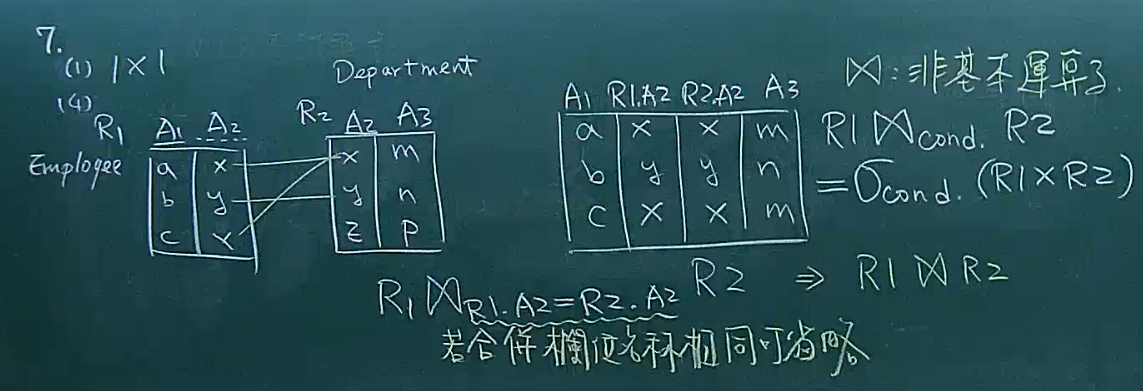 7.
(1) |×|
(4)
Department
R1 Employee
A1 A2
a x
b y
c x
R2
A2 A3
x m
y n
z p
A1 R1.A2 R2.A2 A3
a x x m
b y y n
c x x m
⋈:非基本運算子.
R1 ⋈cond. R2
=σcond. (R1×R2)
R1 ⋈R1.A2=R2.A2 R2 ⇒ R1 ⋈ R2
若合併欄位名稱相同可省略